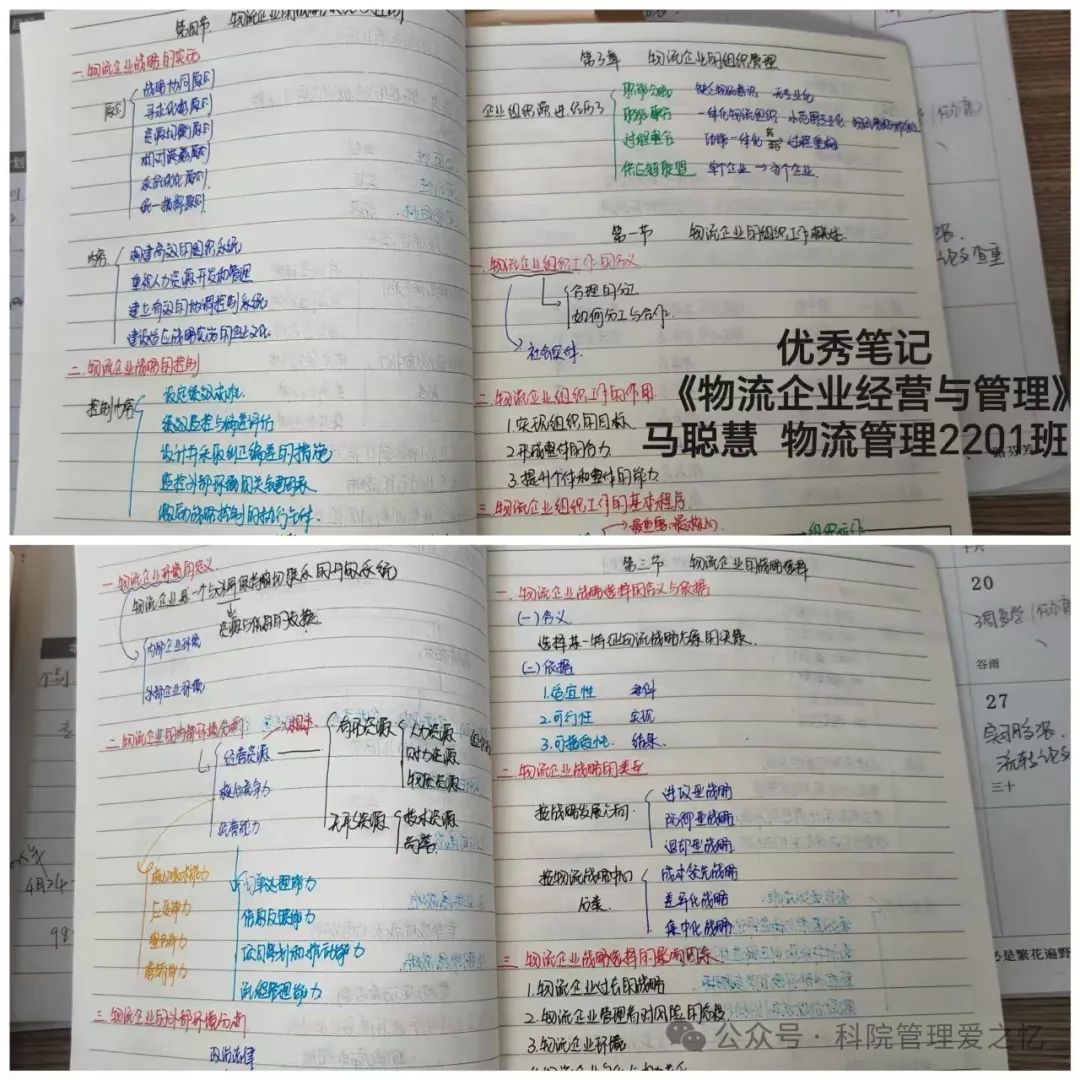 第四节 物流企业的战略实施与控制
一.物流企业战略的实施
原则
战略协同原则
寻求优势原则
资源均衡原则
相对满意原则
系统优化原则
统一指挥原则
内容
构建高效的组织系统
重视人力资源开发和管理
建立有效的协调控制系统
建设适应战略实施的企业文化
二.物流企业战略的控制
控制内容
设定绩效标准
绩效监控与偏差评估
设计并采取纠正偏差的措施
监控外部环境的关键因素
激励战略控制的执行主体
第3章 物流企业的组织管理
企业组织演进.经历了
职能分散 缺乏物流意识 无专业化
职能聚合 一体化物流组织
过程整合 功能一体化 → 过程重构
供应链联盟 单个企业 → 多个企业
第一节 物流企业的组织工作概述
一.物流企业组织工作的含义
合理的分工
如何分工与合作
社会实体
二.物流企业组织工作的作用
1.实现组织的目标
2.形成整体的合力
3.提升个体和整体的能力
三.物流企业组织工作的基本程序
论文查重
优秀笔记
《物流企业经营与管理》
马聪慧 物流管理2201班
一.物流企业环境的定义
内部企业环境
外部企业环境
二.物流企业的内部环境分析
经营资源
核心竞争力
运营能力
有形资源
人力资源
财力资源
物质资源
无形资源
技术资源
商誉
订单处理能力
信息反馈能力
流程管理能力
三.物流企业的外部环境分析
政治法律
4月24
98
第三节 物流企业的战略选择
一.物流企业战略选择的含义与依据
(一)含义
选择某一特定物流战略方案的决策
(二)依据
1.适宜性 条件
2.可行性 实施
3.可接受性 结果
二.物流企业战略的类型
按战略发展方向
进攻型战略
防御型战略
退却型战略
按物流战略中心分类
成本领先战略
差异化战略
集中化战略
三.物流企业战略选择的影响因素
1.物流企业过去的战略
2.物流企业管理者对风险的态度
3.物流企业环境
20
谷雨
27
三十
是繁花遍野
公众号·科院管理爱之忆